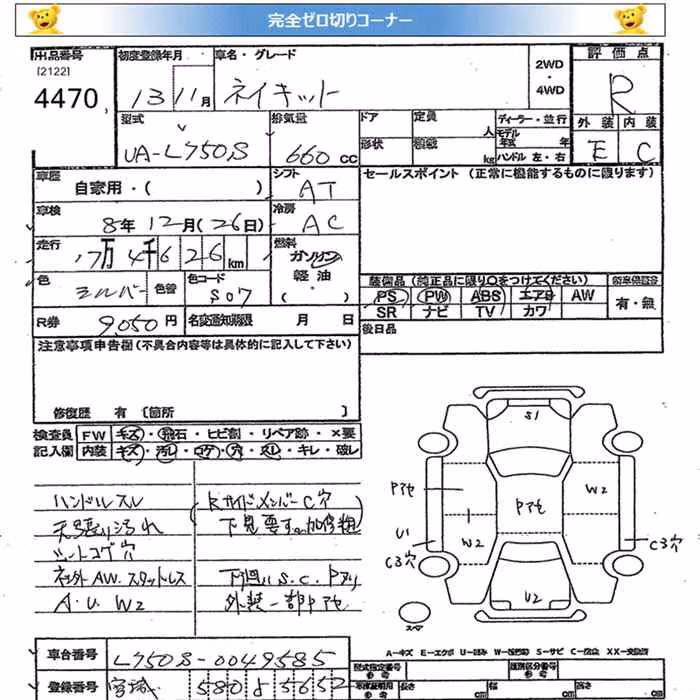 完全ゼロ切りコーナー
出品番号 初度登録年月 車名・グレード 2WD・4WD 評価点
[2122]
4470 13 11月 ネイキット R
型式 排気量 ドア 定員 人 ディーラー・並行 外装 内装
UA-L750S 660 CC 形状 積載 kg モデル年式 年 ハンドル 左・右 E C
車歴 自家用・( ) シフト AT セールスポイント (正常に機能するものに限ります)
車検 8年12月(26日) 冷房 AC
走行 17万4千626km 燃料 ガソリン
軽油
( ・ )
色 シルバー 色替 色コード S07
装備品(純正品に限り○をつけてください) 新車保証書
PS PW ABS エアB AW 有・無
SR ナビ TV カワ
R券 9,050円 名変通知期限 月 日 後日品
注意事項申告欄(不具合内容等は具体的に記入して下さい)
修復歴 有 [箇所 ]
検査員 FW キズ・飛石・ヒビ割・リペア跡・×要
記入欄 内装 キズ・汚レ・コゲ・穴・スレ・キレ・破レ
ハンドルスレ
天張り汚れ
シートコゲ穴
ネット外AW.スタットレス
A.U W2
Rサイドメンバー C穴
下見要す。加修粗
下廻り S.C.Pアリ
外装一部Pアセ
S1
Pアセ
Pアセ
W2
U1
W2
C3穴
C3穴
U2
スペア
A-キズ E-エクボ U-凹み W-波跡 S-サビ C-腐食 XX-交換済
車台番号 L750S-0049585
登録番号 宮崎 580 よ 5652
型式指定番号 参考 類別区分番号 参考
参考 長さ cm 幅 cm 高さ cm